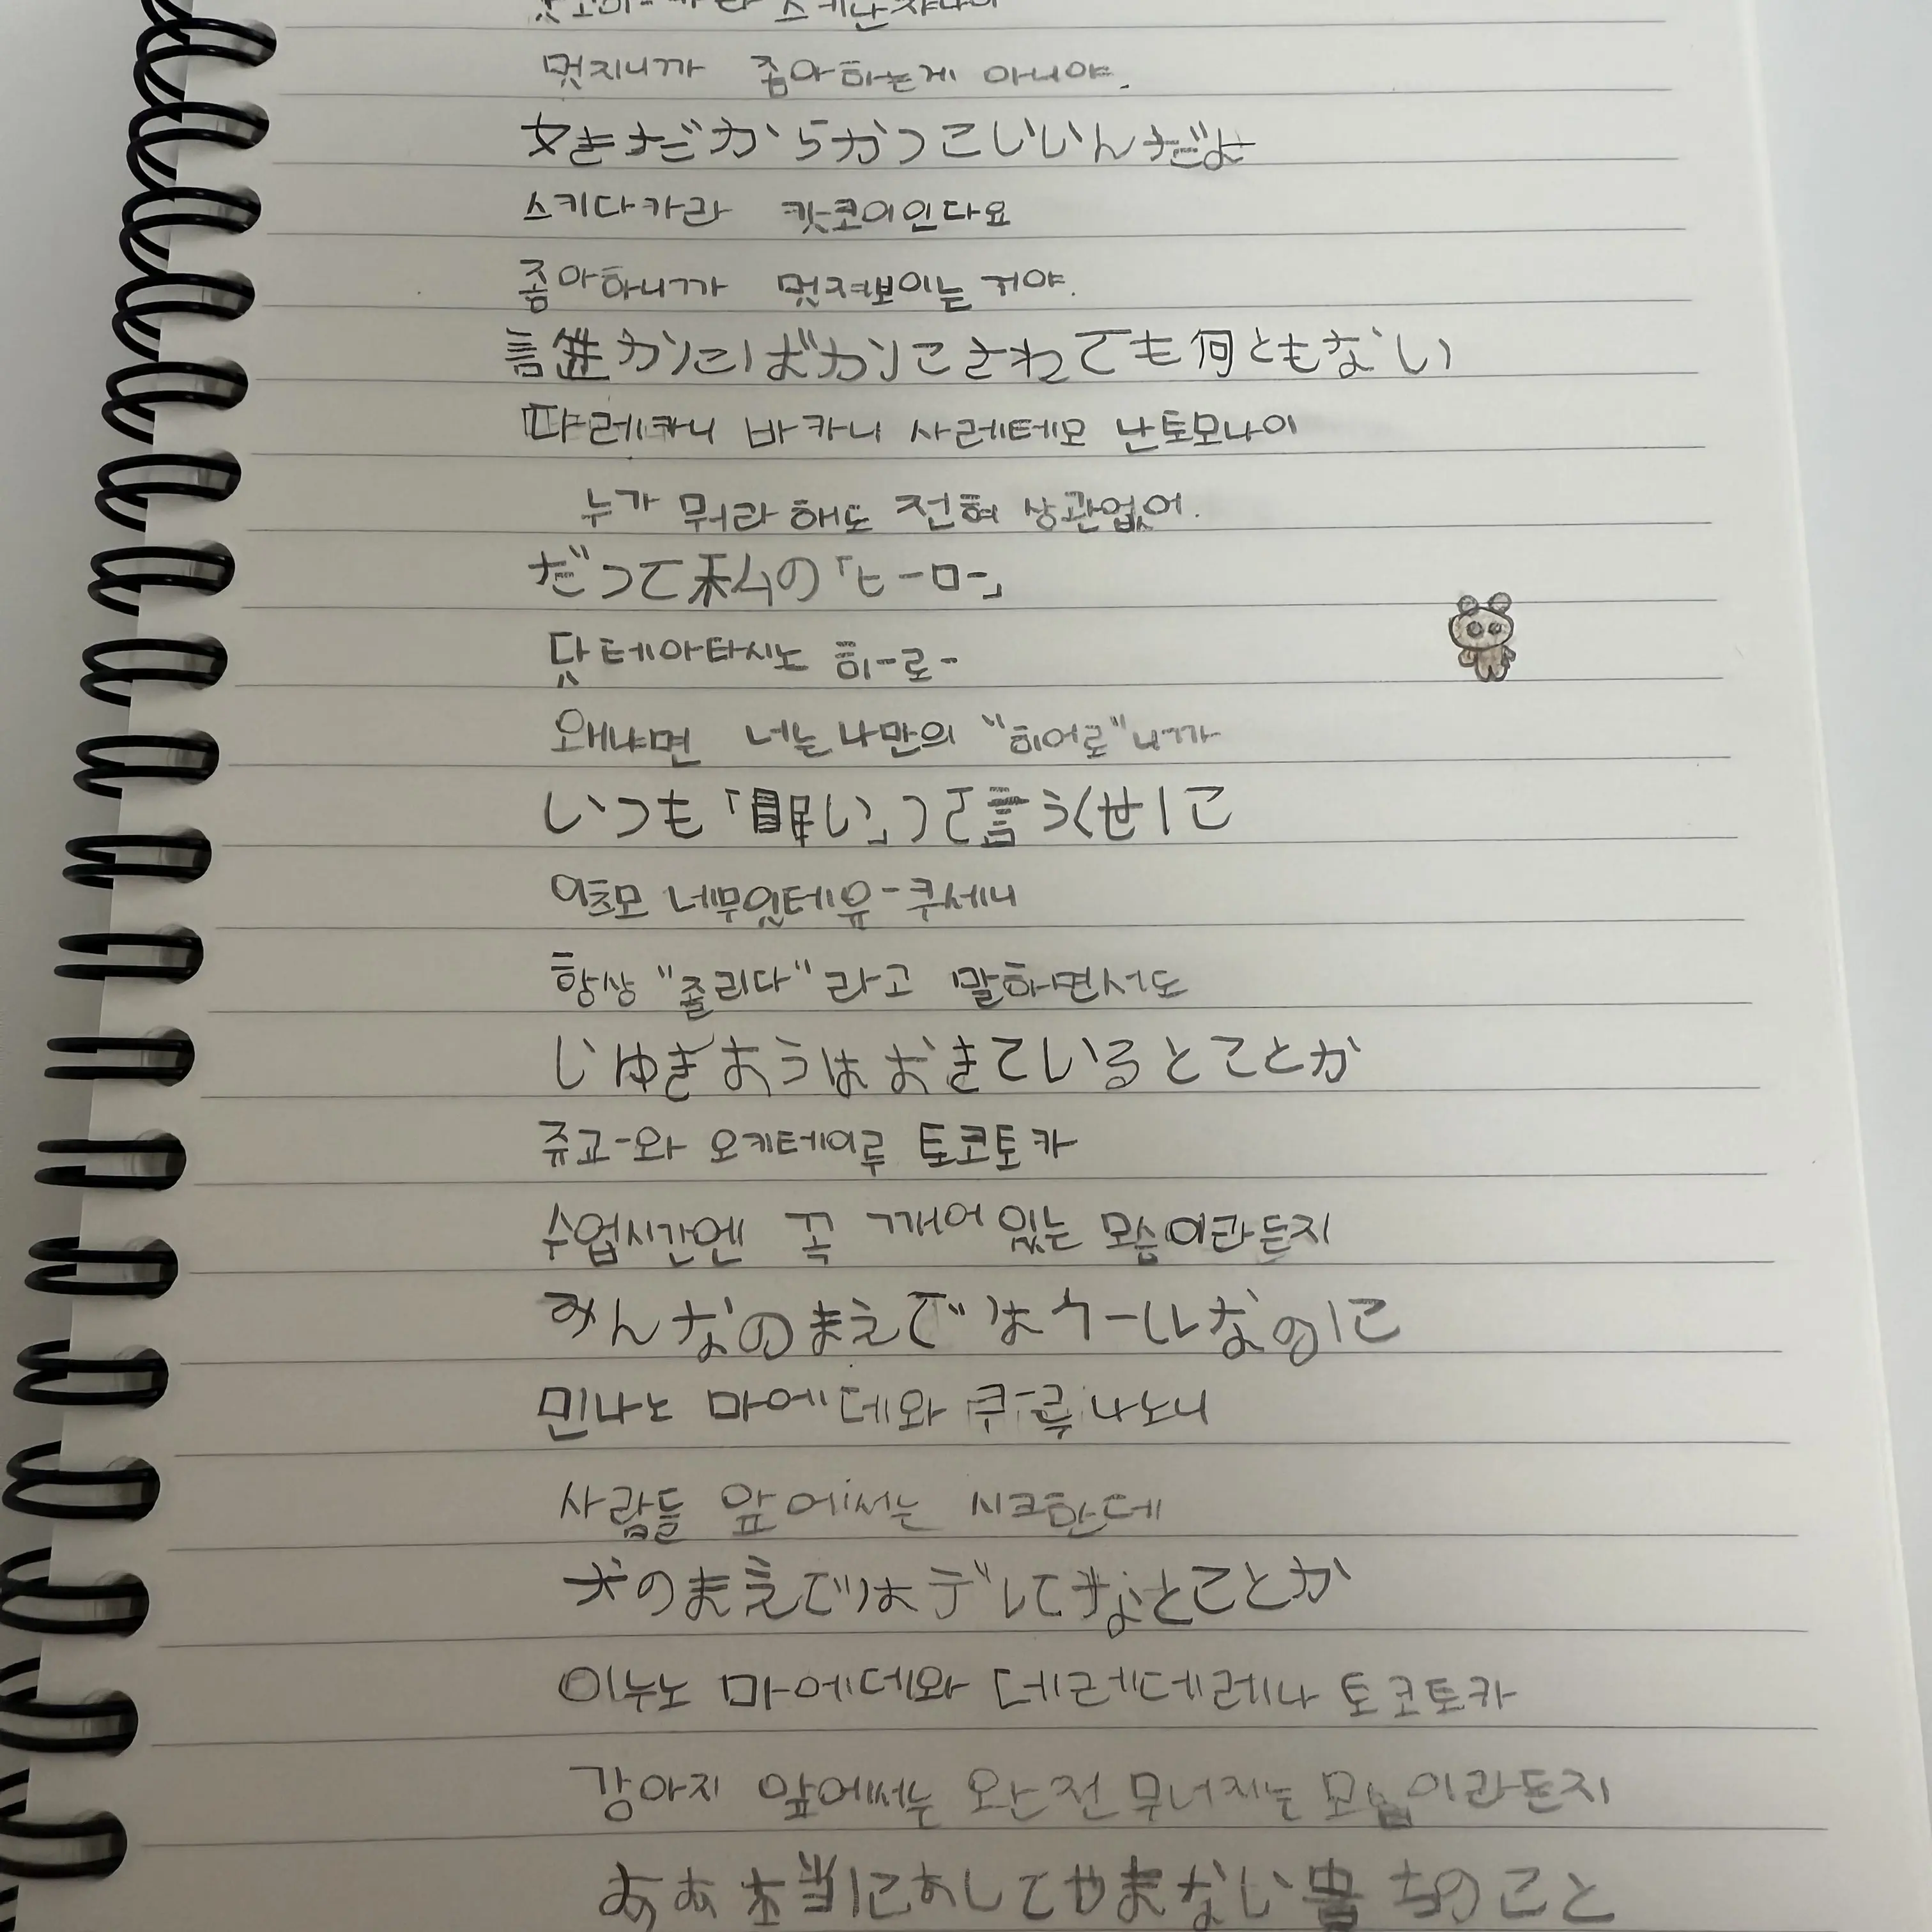 멋지니까 좋아하는게 아니야.
好きだからかっこいいんだよ
스키다카라 캇코이인다요
좋아하니까 멋져보이는 거야.
誰かにばかにされても何ともない
다레카니 바카니 사레테모 난토모나이
누가 뭐라 해도 전혀 상관없어.
だって私の「ヒーロー」
닷테아타시노 히-로-
왜냐면 너는 나만의 "히어로"니까
いつも「眠い」って言うくせに
이츠모 네무잇테유-쿠세니
항상 "졸리다"라고 말하면서도
じゆぎようはおきているとことか
쥬교-와 오키테이루 토코토카
수업시간엔 꼭 깨어 있는 모습이라든지
みんなのまえではクールなのに
민나노 마에데와 쿠-루 나노니
사람들 앞에서는 시크한데
犬のまえではデレてれなとことか
이누노 마에데와 데레데레나 토코토카
강아지 앞에서는 완전 무너지는 모습이라든지
ああ本当にあしてやまない のこと